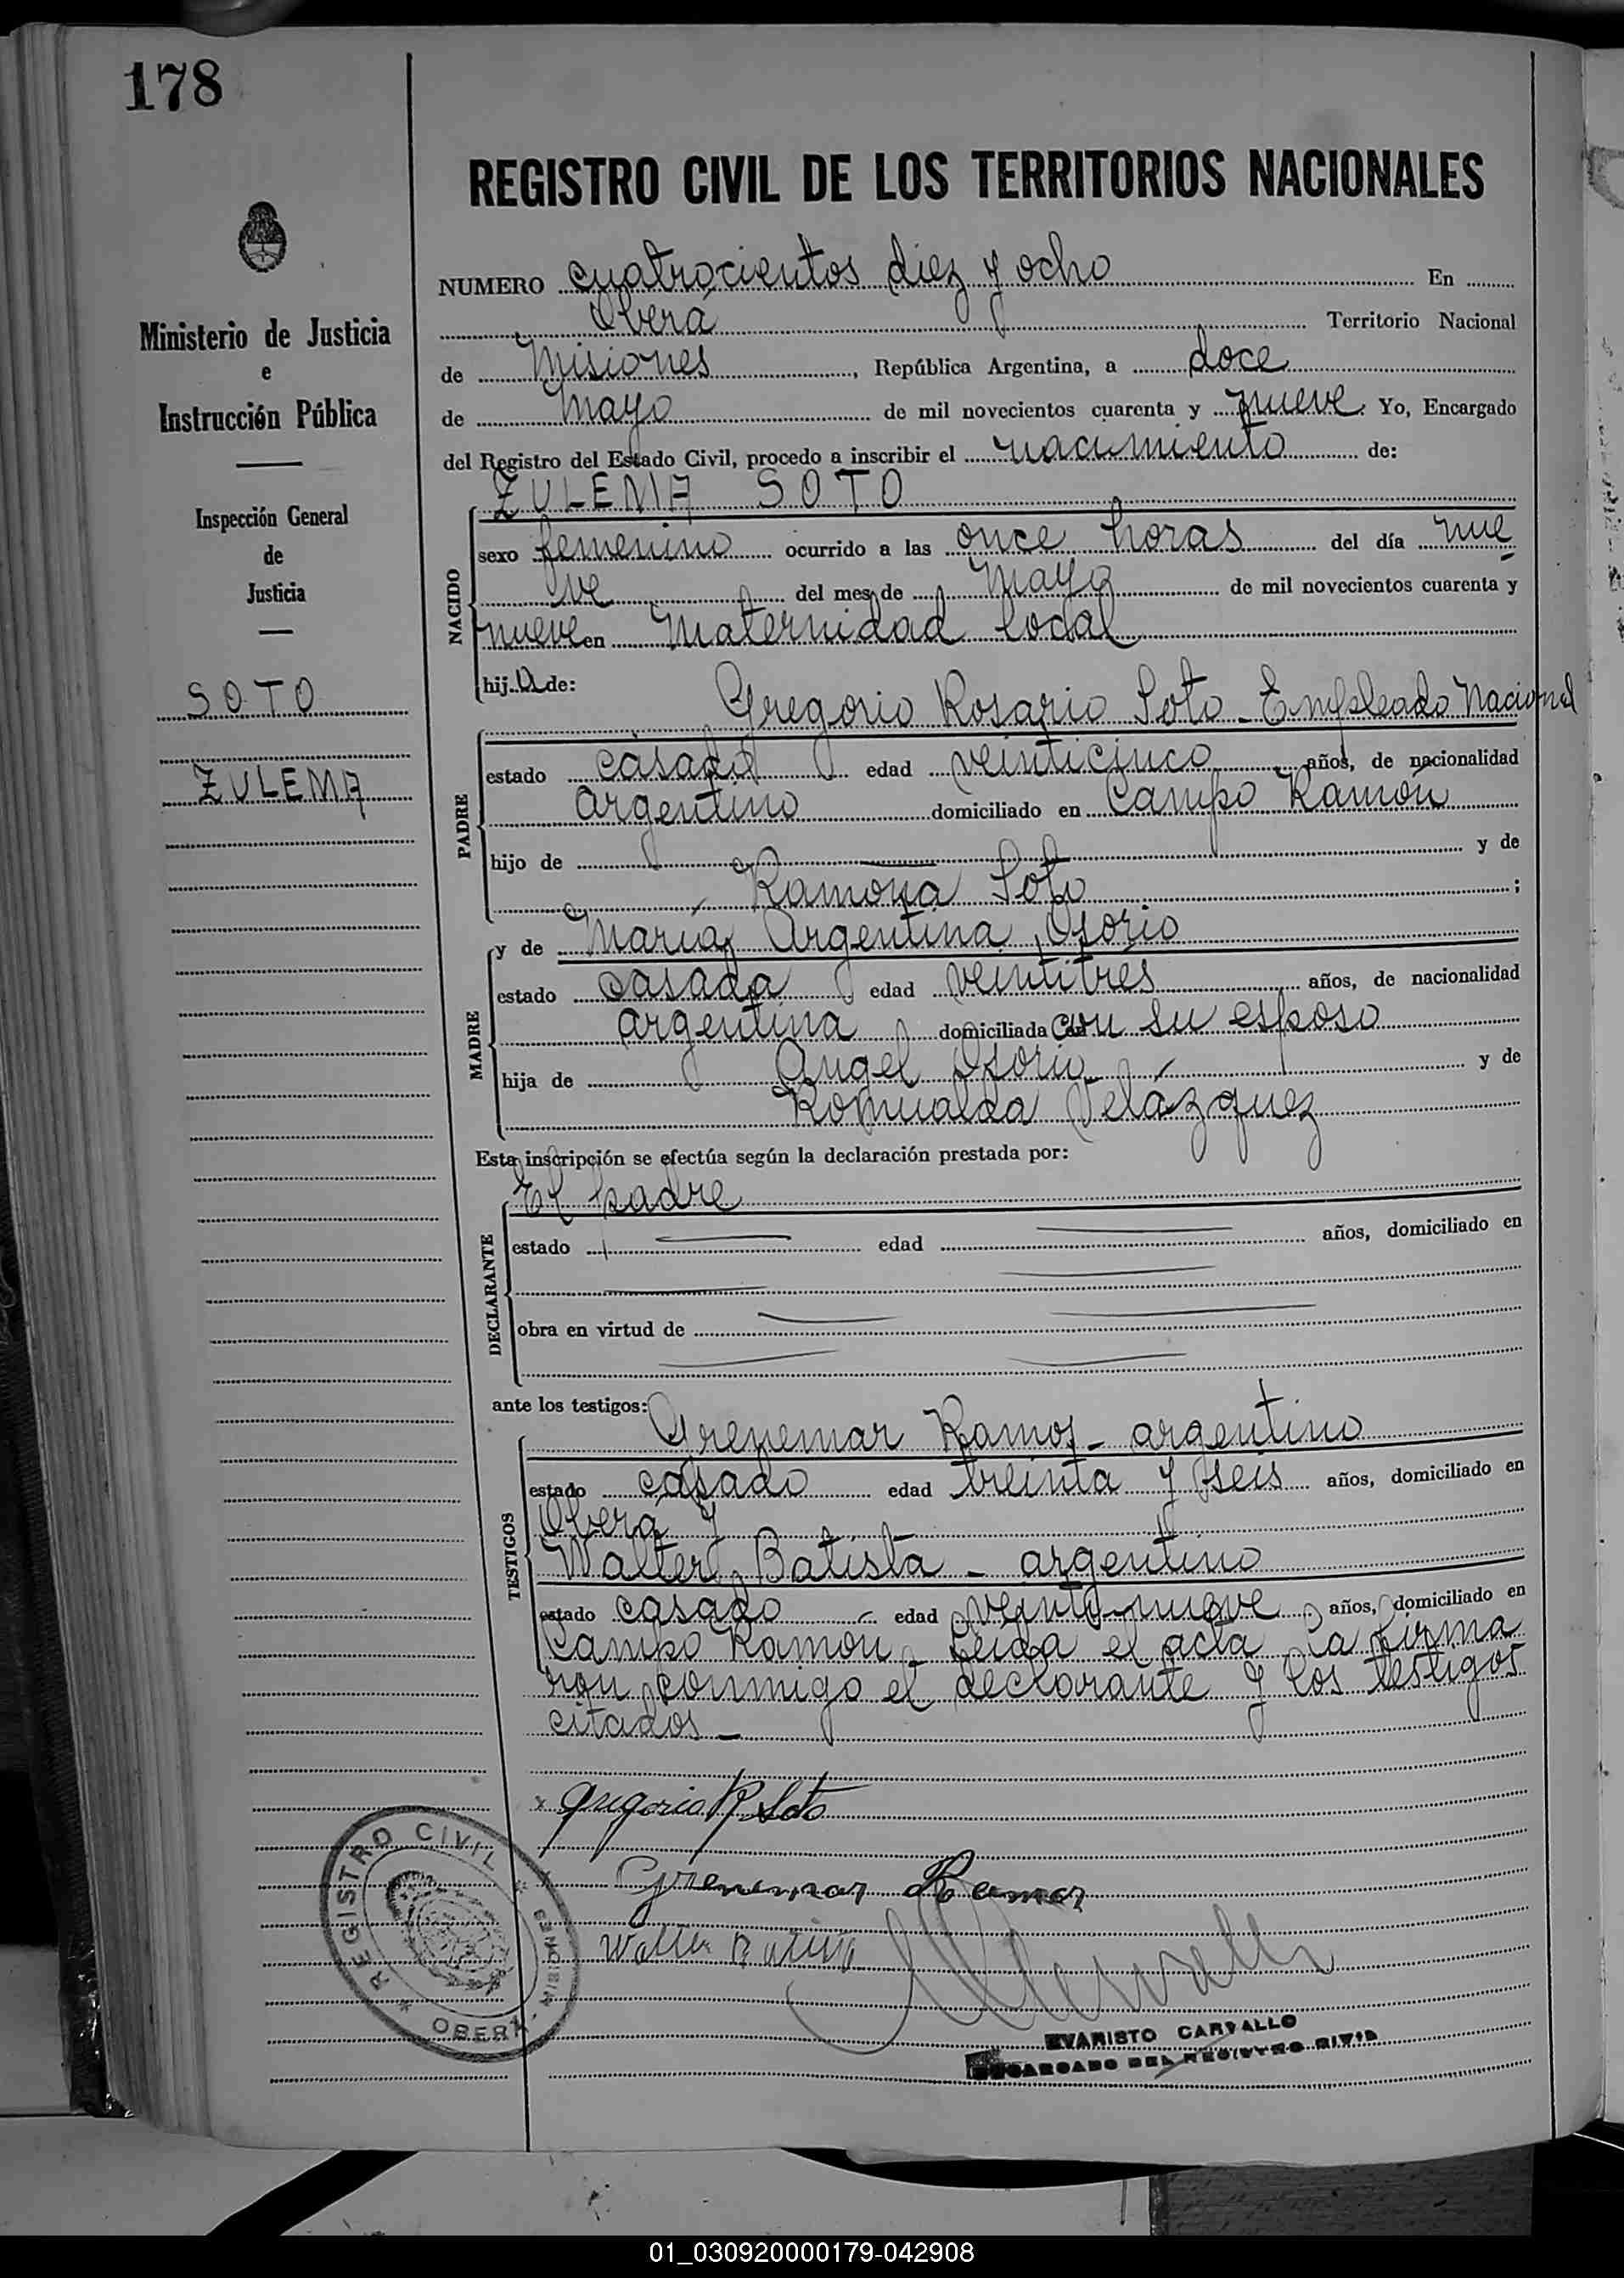 178
REGISTRO CIVIL DE LOS TERRITORIOS NACIONALES
NUMERO cuatrocientos diez y ocho En
Oberá Territorio Nacional
de Misiones, República Argentina, a doce
de mayo de mil novecientos cuarenta y nueve. Yo, Encargado
del Registro del Estado Civil, procedo a inscribir el nacimiento de:
ZULEMA SOTO
NACIDO
sexo femenino ocurrido a las once horas del día nue
ve del mes de Mayo de mil novecientos cuarenta y
nueve en Maternidad local
hija de:
Gregorio Rosario Soto - Empleado Nacional
PADRE
estado casado edad veinticinco años, de nacionalidad
argentino domiciliado en Campo Ramón
hijo de y de
Ramona Soto ;
MADRE
y de María Argentina Osorio
estado casada edad veintitres años, de nacionalidad
argentina domiciliada con su esposo
hija de Angel Osorio y de
Romualda Velázquez
Esta inscripción se efectúa según la declaración prestada por:
El padre
DECLARANTE
estado edad años, domiciliado en
obra en virtud de
ante los testigos:
Grenemar Ramos - argentino
TESTIGOS
estado casado edad treinta y seis años, domiciliado en
Oberá y
Walter Batista - argentino
estado casado edad veintinueve años, domiciliado en
Campo Ramón - Leída el acta la firma
ron conmigo el declarante y los testigos
citados -
x Gregorio R Soto
Grenemar Ramos
Walter Batista
EVARISTO CARVALLO
ENCARGADO DEL REGISTRO CIVIL
Ministerio de Justicia
e
Instrucción Pública
Inspección General
de
Justicia
SOTO
ZULEMA
* REGISTRO CIVIL *
OBERÁ - MISIONES
01_030920000179-042908